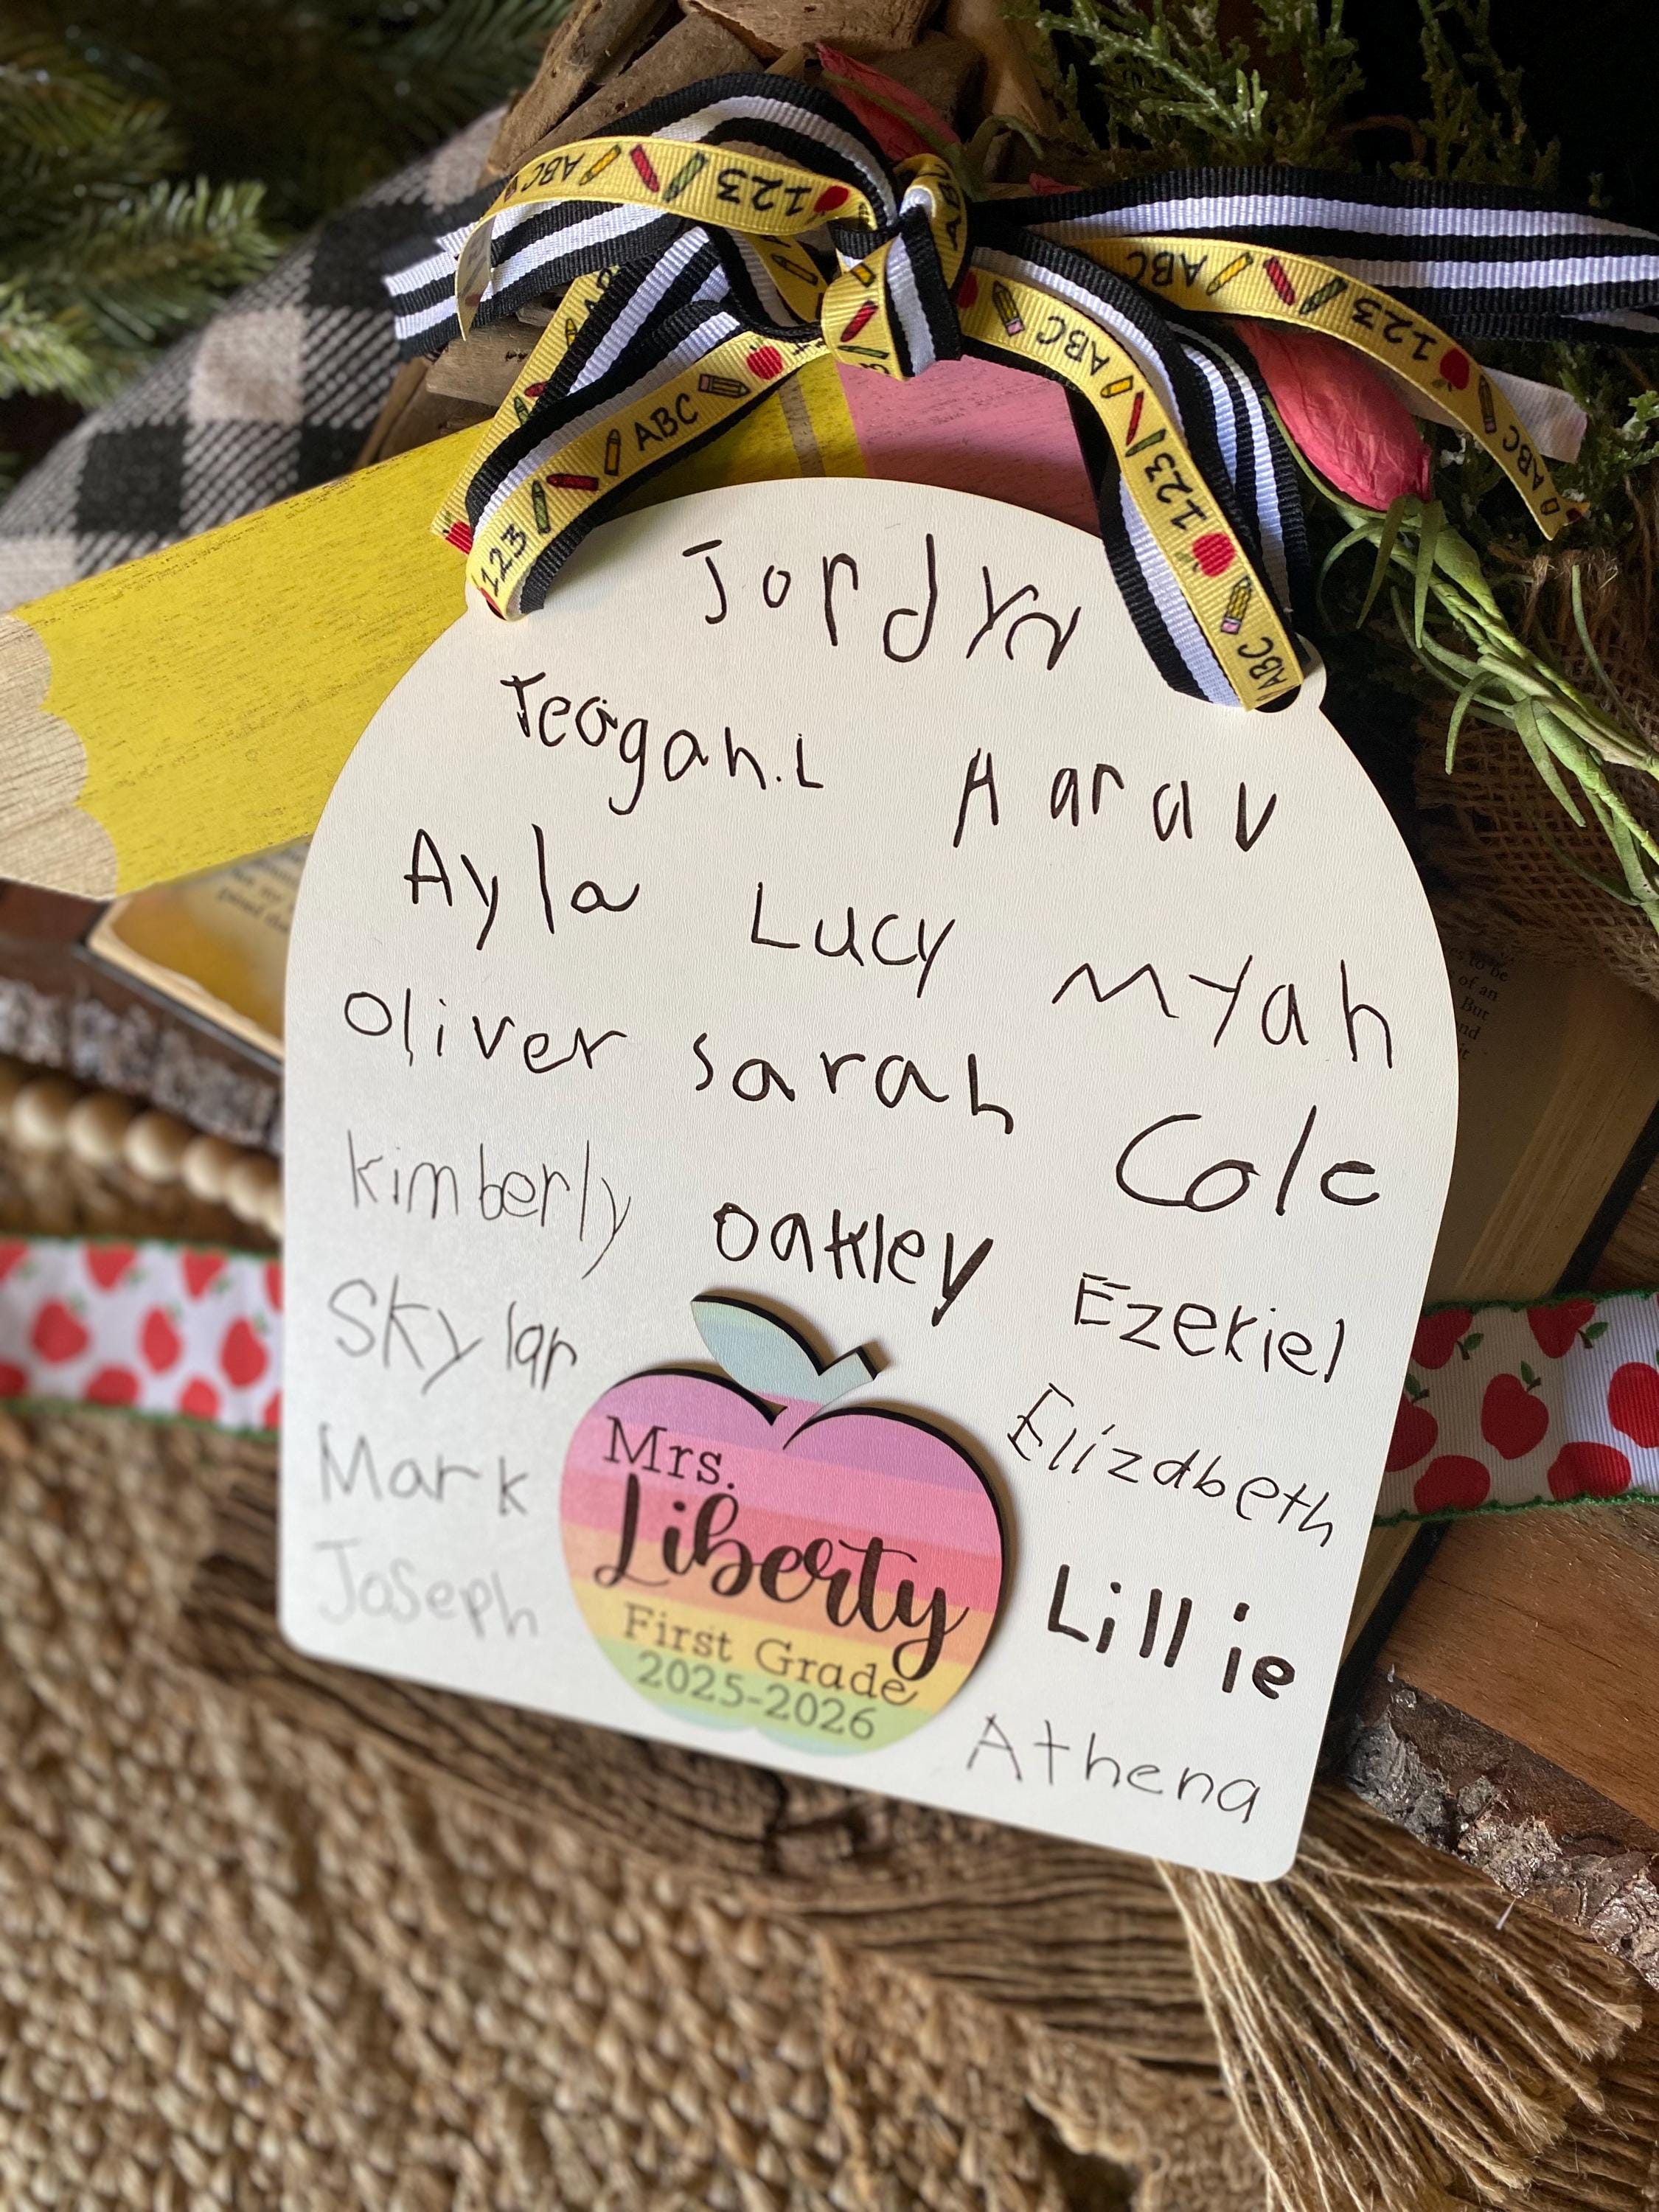 ABC 123 ABC
ABC 123
ABC
123
ABC
123
ABC
Jordyn
Teagan.L Aarav
Ayla Lucy Myah
Oliver Sarah Cole
Kimberly Oakley Ezekiel
Skylar Elizabeth
Mark Lillie
Joseph Athena
Mrs.
Liberty
First Grade
2025-2026